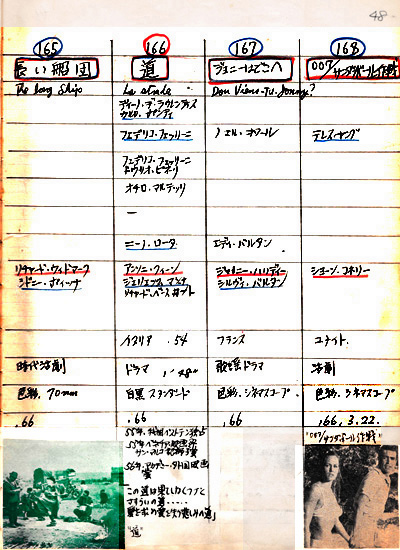 48
165
166
167
168
長い船団
道
ジョニーはどこへ
007/サンダーボール作戦
The long Ship
La strada
D'ou Viens-tu Jonny?
ディーノ・デ・ラウレンティス
カルロ・ポンティ
フェデリコ・フェリーニ
ノエル・ホワール
テレンス・ヤング
フェデリコ・フェリーニ
トゥリオ・ピネリ
オテロ・マルテッリ
ー
ニーノ・ロータ
エディ・バルタン
リチャード・ウィドマーク
シドニー・ポワチエ
アンソニー・クィーン
ジュリエッタ・マシーナ
リチャード・ベースハート
ジョニー・ハリディー
シルヴィ・バルタン
ショーン・コネリー
イタリア .54
フランス
ユナイト.
時代活劇
ドラマ 1゜48"
歌謡ドラマ
活劇
色彩. 70mm
白黒 スタンダード
色彩. シネマスコープ
色彩. シネマスコープ.
.66
.66
.66
.66, 3.22.
56年. アカデミー外国映画
賞
この道は果てしなくつづく
"道"
"007/サンダーボール作戦"